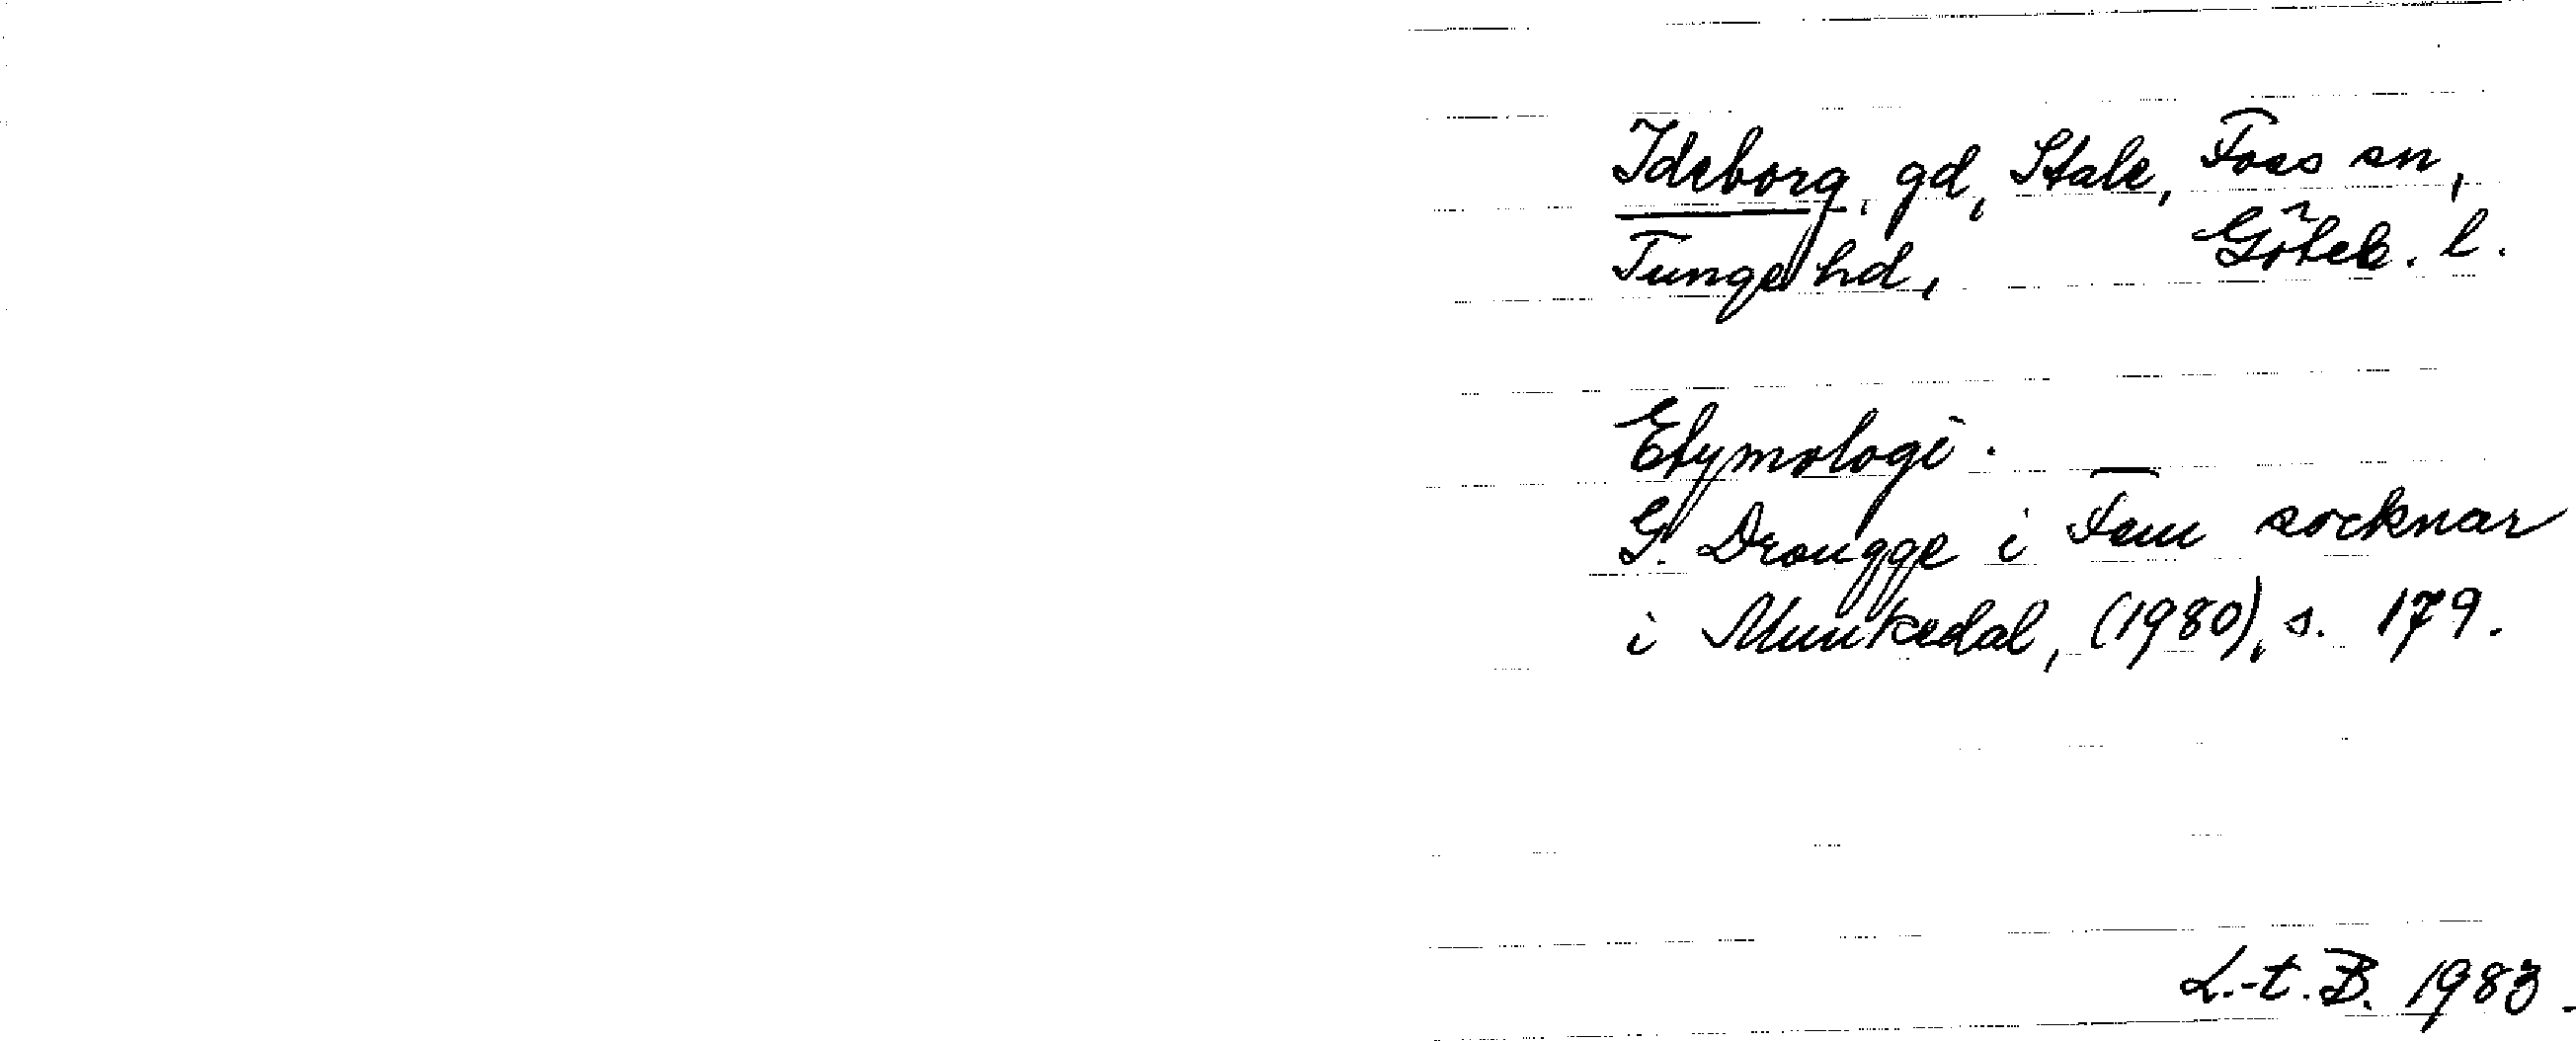 Ideborg, gd, Stale, Foss sn,
Tunge hd, Göteb. l.
Etymologi.
G. Drougge i Fem socknar
i Munkedal, (1980), s. 179.
L.-t. B. 1983.